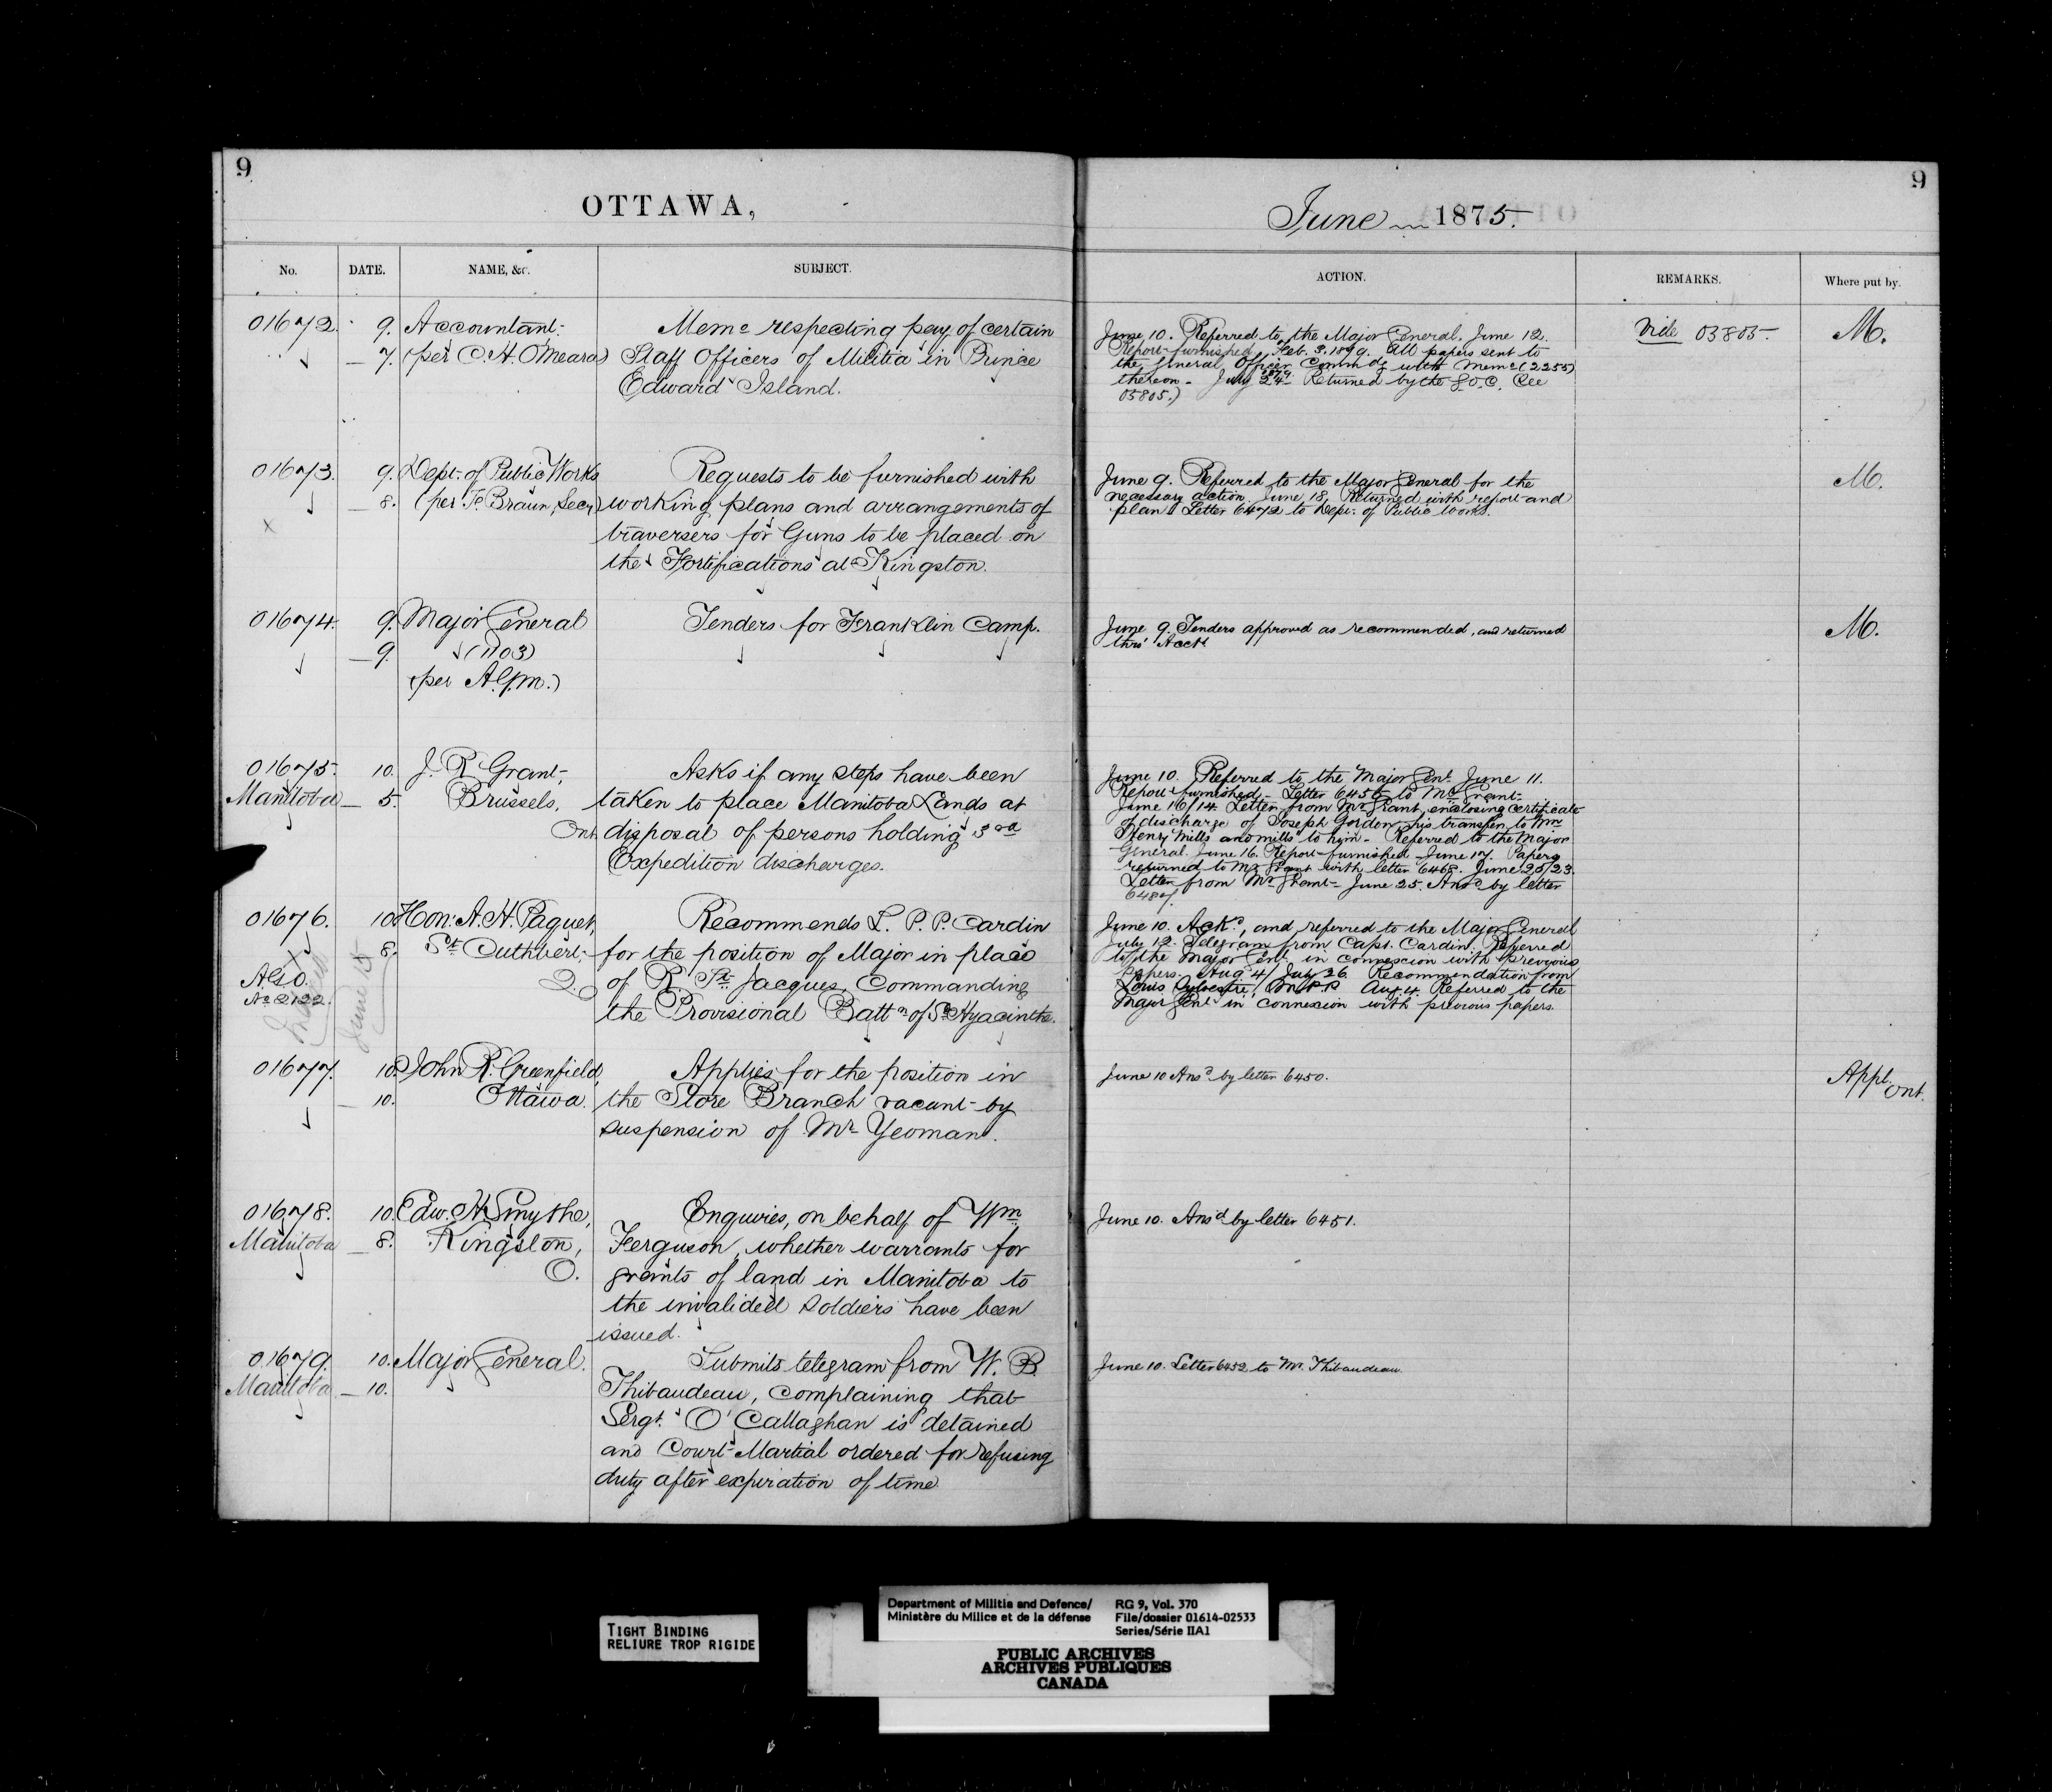 9
OTTAWA,
No. DATE. NAME, &c. SUBJECT.
01672. 9. Accountant, Memo respecting pay of certain
— 7. (per C. H. O'Meara) Staff Officers of Militia in Prince
Edward Island.
01673. 9. Dept. of Public Works Requests to be furnished with
— 8. (per F. Braun, Secy) working plans and arrangements of
x traversers for Guns to be placed on
the Fortifications at Kingston.
01674. 9. Major General Tenders for Franklin Camp.
— 9. (1103)
(per A.G.M.)
01675. 10. J. R. Grant, Asks if any steps have been
Manitoba — 5. Brussels, taken to place Manitoba Lands at
Ont. disposal of persons holding 3rd
Expedition discharges.
01676. 10. Hon: A. H. Paquet, Recommends L. P. P. Cardin
8. St. Cuthbert, for the position of Major in place
A.G.O. Q. of R. St. Jacques, Commanding
No 2122. the Provisional Battn of St Hyacinthe.
June 15
01677. 10. John R. Greenfield, Applies for the position in
— 10. Ottawa. the Store Branch vacant by
suspension of Mr Yeoman.
01678. 10. Edw. H. Smythe, Enquires, on behalf of Wm
Manitoba — 8. Kingston, Ferguson, whether warrants for
O. grants of land in Manitoba to
the invalided soldiers have been
issued.
01679. 10. Major General. Submits telegram from W. B.
Manitoba — 10. Thibaudeau, complaining that
Sergt. O'Callaghan is detained
and Court-Martial ordered for refusing
duty after expiration of time.
9
June 1875.
ACTION. REMARKS. Where put by.
June 10. Referred to the Major General. June 12. Vide 05805. M.
Report furnished. Feb. 3. 1879. All papers sent to
the General Officer Commdg with Memo (2255)
thereon. July 24 1879 Returned by the G.O.C. (See
05805.)
June 9. Referred to the Major General for the M.
necessary action. June 18. Returned with report and
plan. Letter 6472 to Dept. of Public Works.
June 9. Tenders approved as recommended, and returned M.
thro' Acct
June 10. Referred to the Major Genl. June 11.
Report furnished. Letter 6456 to Mr Grant.
June 16/14. Letter from Mr Grant, enclosing certificate
of discharge of Joseph Gordon, his transfer to Wm
Henry Mills and Mills to him. Referred to the Major
General. June 16. Report furnished. June 17. Papers
returned to Mr Grant with letter 6468. June 25/23.
Letter from Mr Grant. June 25. Ansd by letter
6487.
June 10. Ackd, and referred to the Major General
July 12. Telegram from Capt. Cardin. Referred
to the Major Genl. in connexion with previous
papers. Aug 4/July 26. Recommendation from
Louis Sylvestre, M.P.P. Aug. 4. Referred to the
Major Genl in connexion with previous papers.
June 10 Ansd by letter 6450. Appt. Ont.
June 10. Ansd by letter 6451.
June 10. Letter 6452 to Mr. Thibaudeau.
TIGHT BINDING
RELIURE TROP RIGIDE
Department of Militia and Defence/ RG 9, Vol. 370
Ministère du Milice et de la défense File/dossier 01614-02533
Series/Série IIA1
PUBLIC ARCHIVES
ARCHIVES PUBLIQUES
CANADA